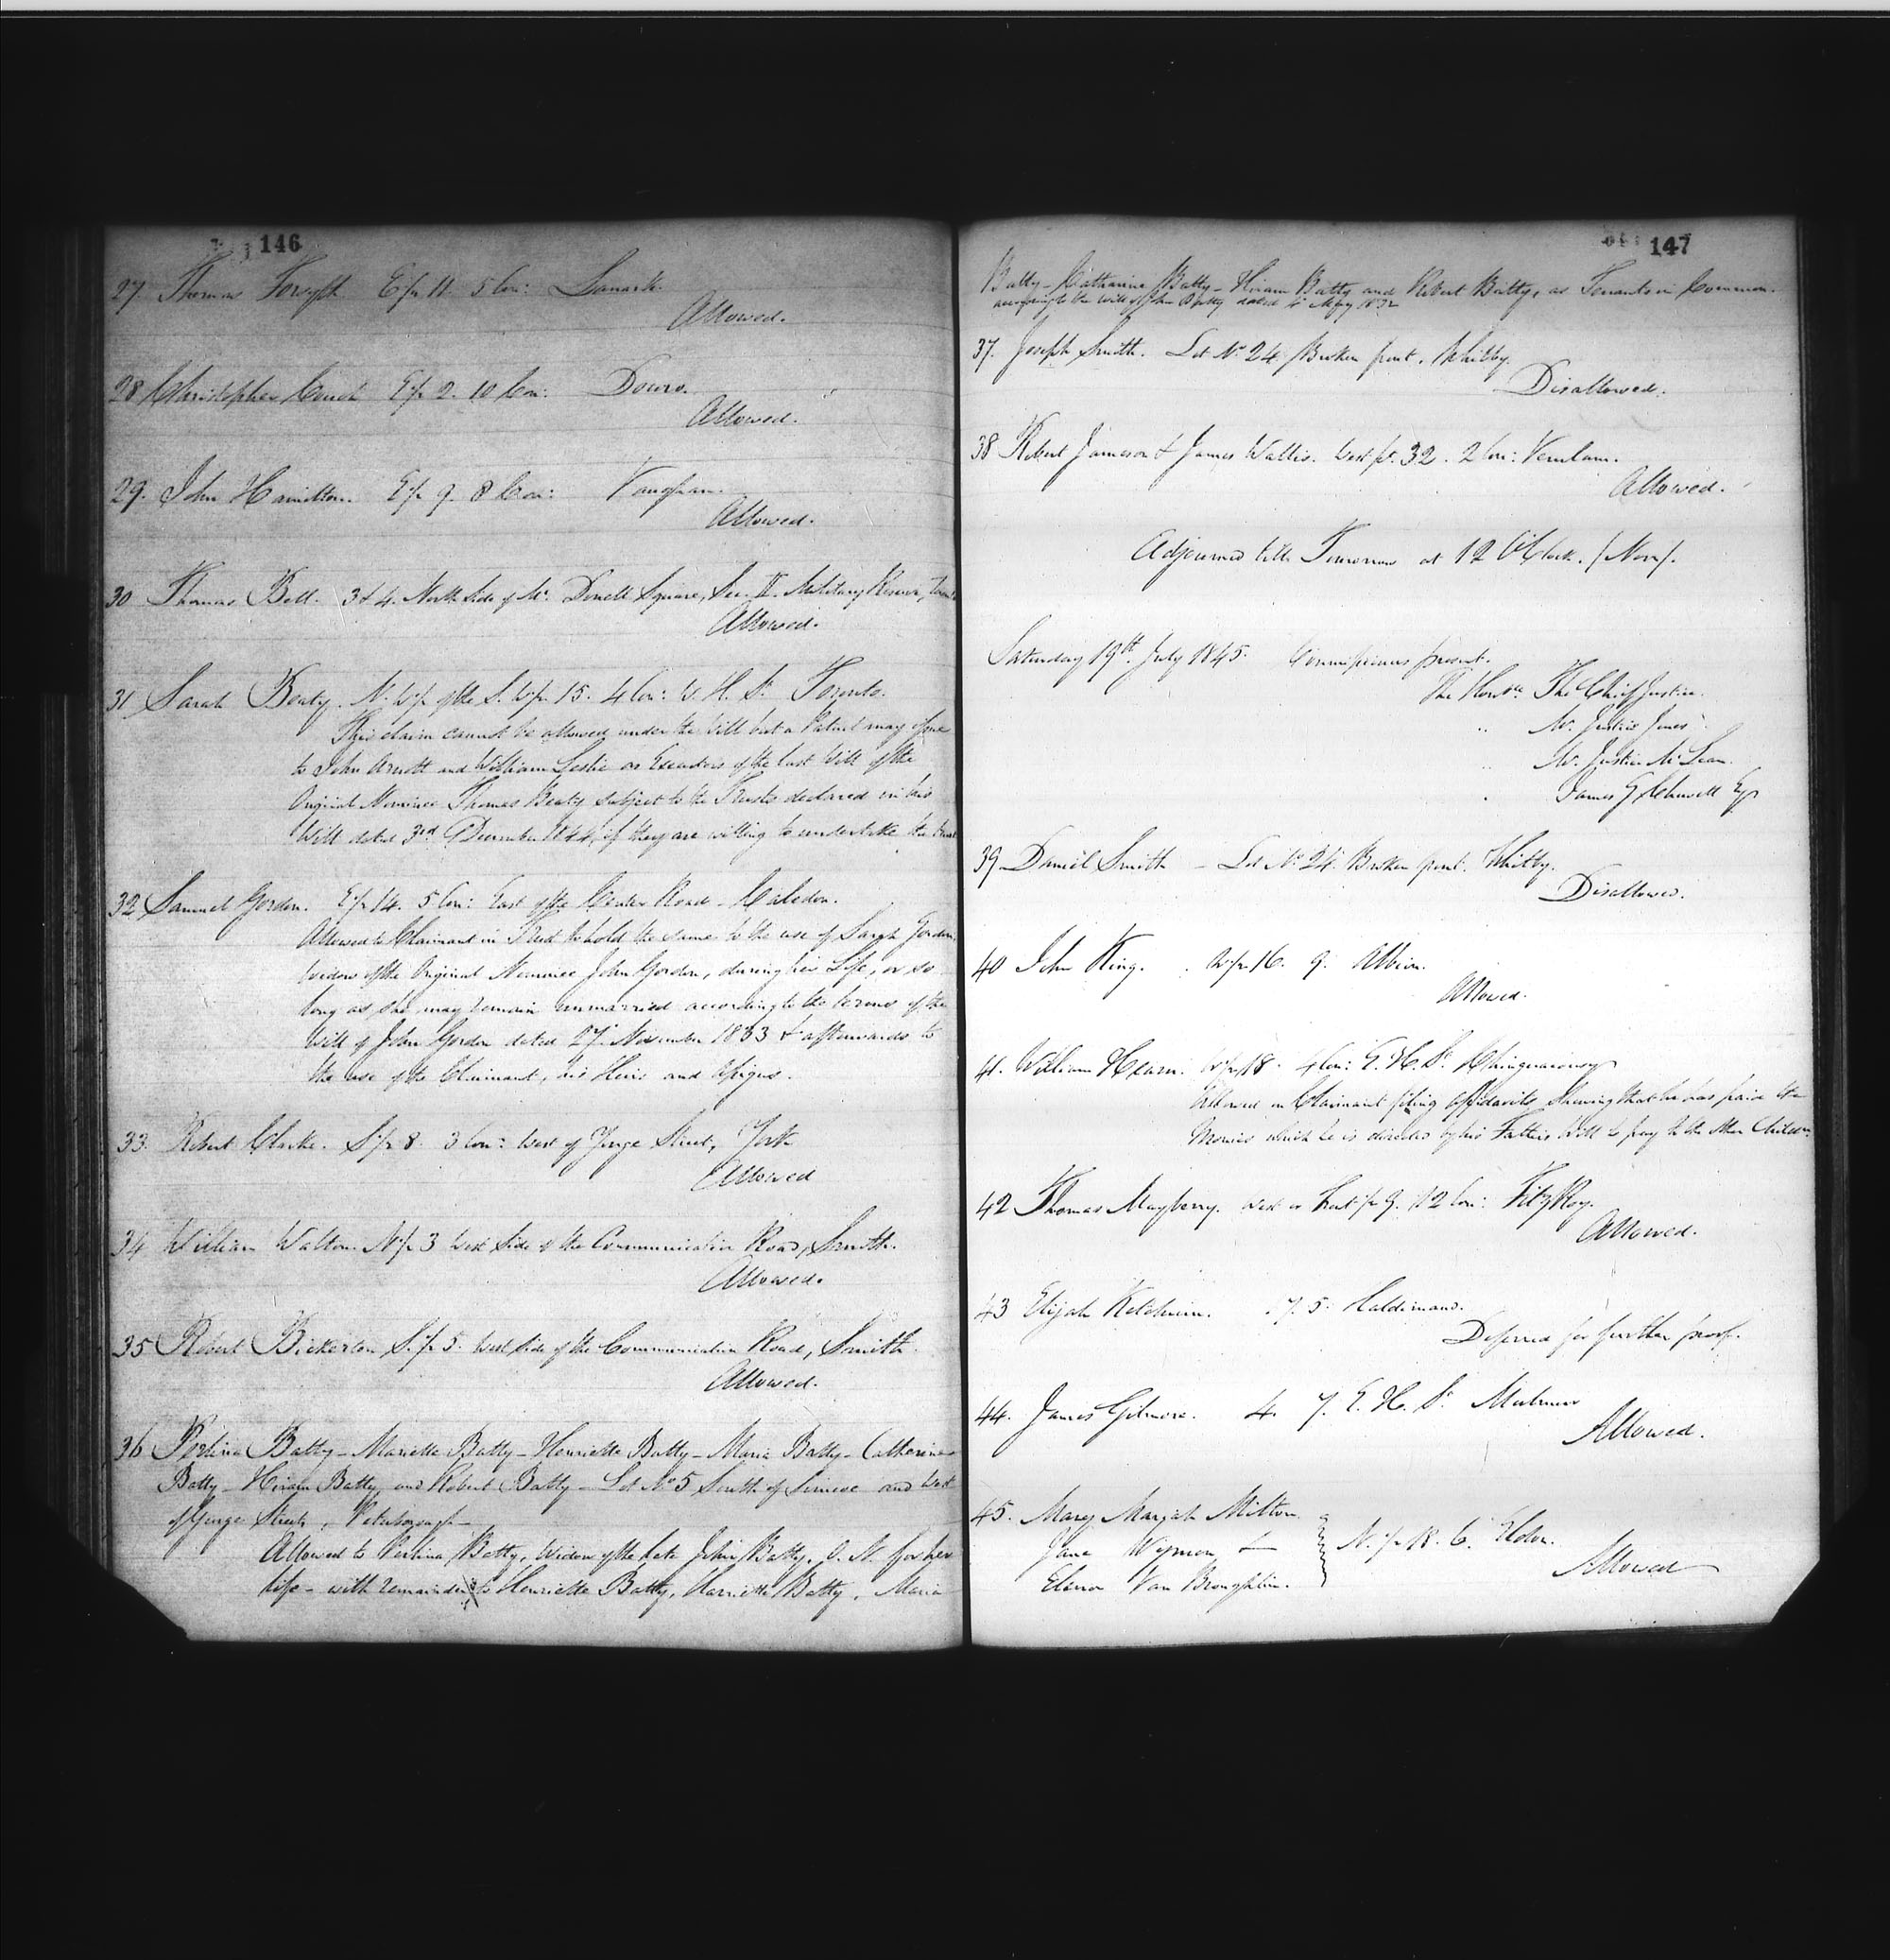 146
27. Thomas Forsyth E/h 11. 5 Con: Lanark.
Allowed.
28 Christopher Couch E/h 2. 10 Con: Douro.
Allowed.
29. John Hamilton. E/h 9. 8 Con: Vaughan.
Allowed.
30 Thomas Bell. 3 & 4. North Side of Mc Donell Square, Sec. II. Military Reserve,
Allowed.
31 Sarah Beaty. N. W/h of the S. W/h 15. 4 Con: W. H. St. Toronto.
This claim cannot be allowed under the Will but a Patent may issue
to John Arnott and William Leslie as Executors of the last Will of the
Original Nominee Thomas Beaty subject to the Trusts declared in his
Will dated 3rd December 1844, if they are willing to undertake the trust
32 Samuel Gordon. E/h 14. 5 Con: East of the Center Road - Caledon.
Allowed to Claimant in Trust to hold the same to the use of Sarah Gordon,
Widow of the Original Nominee John Gordon, during her Life, or so
long as she may remain unmarried according to the terms of the
Will of John Gordon dated 27 November 1833 & afterwards to
the use of the Claimant, his Heirs and Assigns.
33. Robert Clarke. S/h 8. 3 Con: West of Yonge Street, York
Allowed
34 William Walton. N/h 3 West side of the Communication Road, Smith.
Allowed.
35 Robert Bickerton S./h 5. West side of the Communication Road, Smith.
Allowed.
36 Batty - Mariette Batty - Henriette Batty - Maria Batty - Catherine
Batty - Hiram Batty, and Robert Batty - Lot No 5 South of Simcoe and West
of George Streets, Peterborough -
Allowed to Batty, Widow of the late John Batty, O. N. for her
life - with remainder to Henriette Batty, Harriette Batty, Maria
147
Batty - Catharine Batty - Hiram Batty and Robert Batty, as Tenants in Common.
according to the Will of John Batty dated 1832
37. Joseph Smith. Lot No 24. Broken front, Whitby.
Disallowed.
38 Robert Jameson & James Wallis. West pt. 32. 2 Con: Verulam.
Allowed.
Adjourned till Tomorrow at 12 O'Clock. (Noon).
Saturday 19th July 1845. Commissioners present.
The Honble The Chief Justice.
" Mr. Justice Jones
" Mr. Justice McLean.
" James G. Chewett Esqr
39 Daniel Smith - Lot No 24. Broken front. Whitby.
Disallowed.
40 John King. W/h 16. 9. Albion.
Allowed.
41. William Hearn. W/h 18. 4 Con: E. H. St. Chinguacousy
Allowed on Claimant filing affidavits shewing that he has paid the
Monies which he is directed by his Fathers Will to pay to the other Children.
42 Thomas Mayberry. West or front /h 9. 12 Con: Fitz Roy.
Allowed.
43 Elijah Ketchum. 17. 5. Haldimand.
Deferred for further proof.
44. James Gilmore. 4. 7. E. H. St. Mulmur
Allowed.
45. Mary Marjah Milton
Jane Wyman &
Elenor Van Broughlin.
N./h 18. 6. Eldon.
Allowed